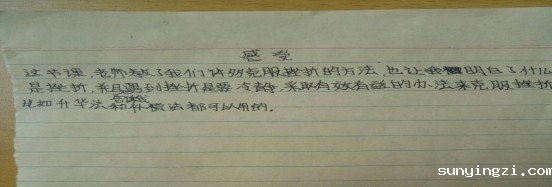 感受
这节课,老师教了我们许多克服挫折的方法,也让我明白了什么
是挫折,并且遇到挫折是要冷静,采取有效有益的办法来克服挫折
比如升华法和补偿法都可以用的。
sunyingzi.com